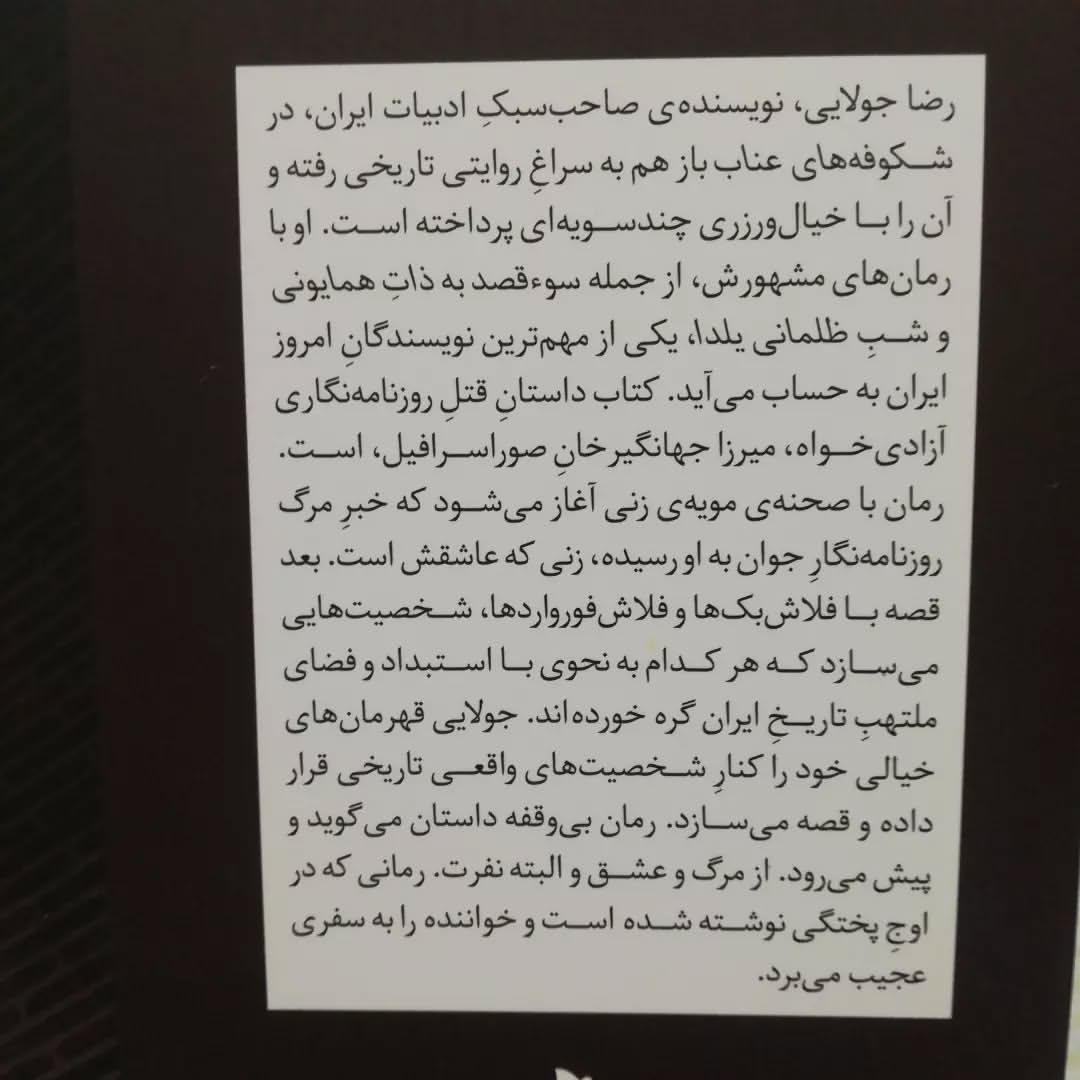 رضا جولایی، نویسنده‌ی صاحب‌سبکِ ادبیات ایران، در
شکوفه‌های عناب باز هم به سراغِ روایتی تاریخی رفته و
آن را با خیال‌ورزری چندسویه‌ای پرداخته است. او با
رمان‌های مشهورش، از جمله سوءقصد به ذاتِ همایونی
و شبِ ظلمانی یلدا، یکی از مهم‌ترین نویسندگانِ امروز
ایران به حساب می‌آید. کتاب داستانِ قتلِ روزنامه‌نگاری
آزادی‌خواه، میرزا جهانگیرخانِ صوراسرافیل، است.
رمان با صحنه‌ی مویه‌ی زنی آغاز می‌شود که خبرِ مرگ
روزنامه‌نگارِ جوان به او رسیده، زنی که عاشقش است. بعد
قصه با فلاش‌بک‌ها و فلاش‌فورواردها، شخصیت‌هایی
می‌سازد که هر کدام به نحوی با استبداد و فضای
ملتهبِ تاریخِ ایران گره خورده‌اند. جولایی قهرمان‌های
خیالی خود را کنارِ شخصیت‌های واقعی تاریخی قرار
داده و قصه می‌سازد. رمان بی‌وقفه داستان می‌گوید و
پیش می‌رود. از مرگ و عشق و البته نفرت. رمانی که در
اوجِ پختگی نوشته شده است و خواننده را به سفری
عجیب می‌برد.